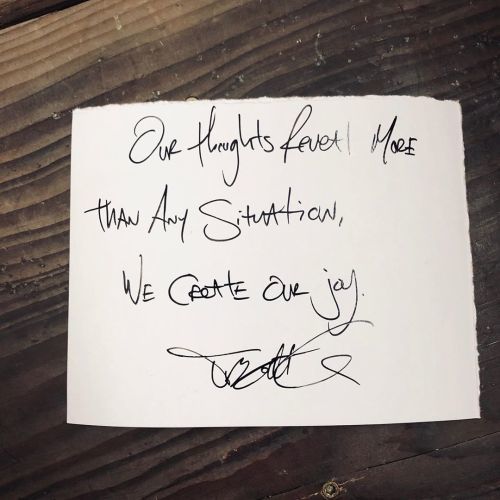 Our thoughts Reveal More
than Any Situation,
We Create our joy.